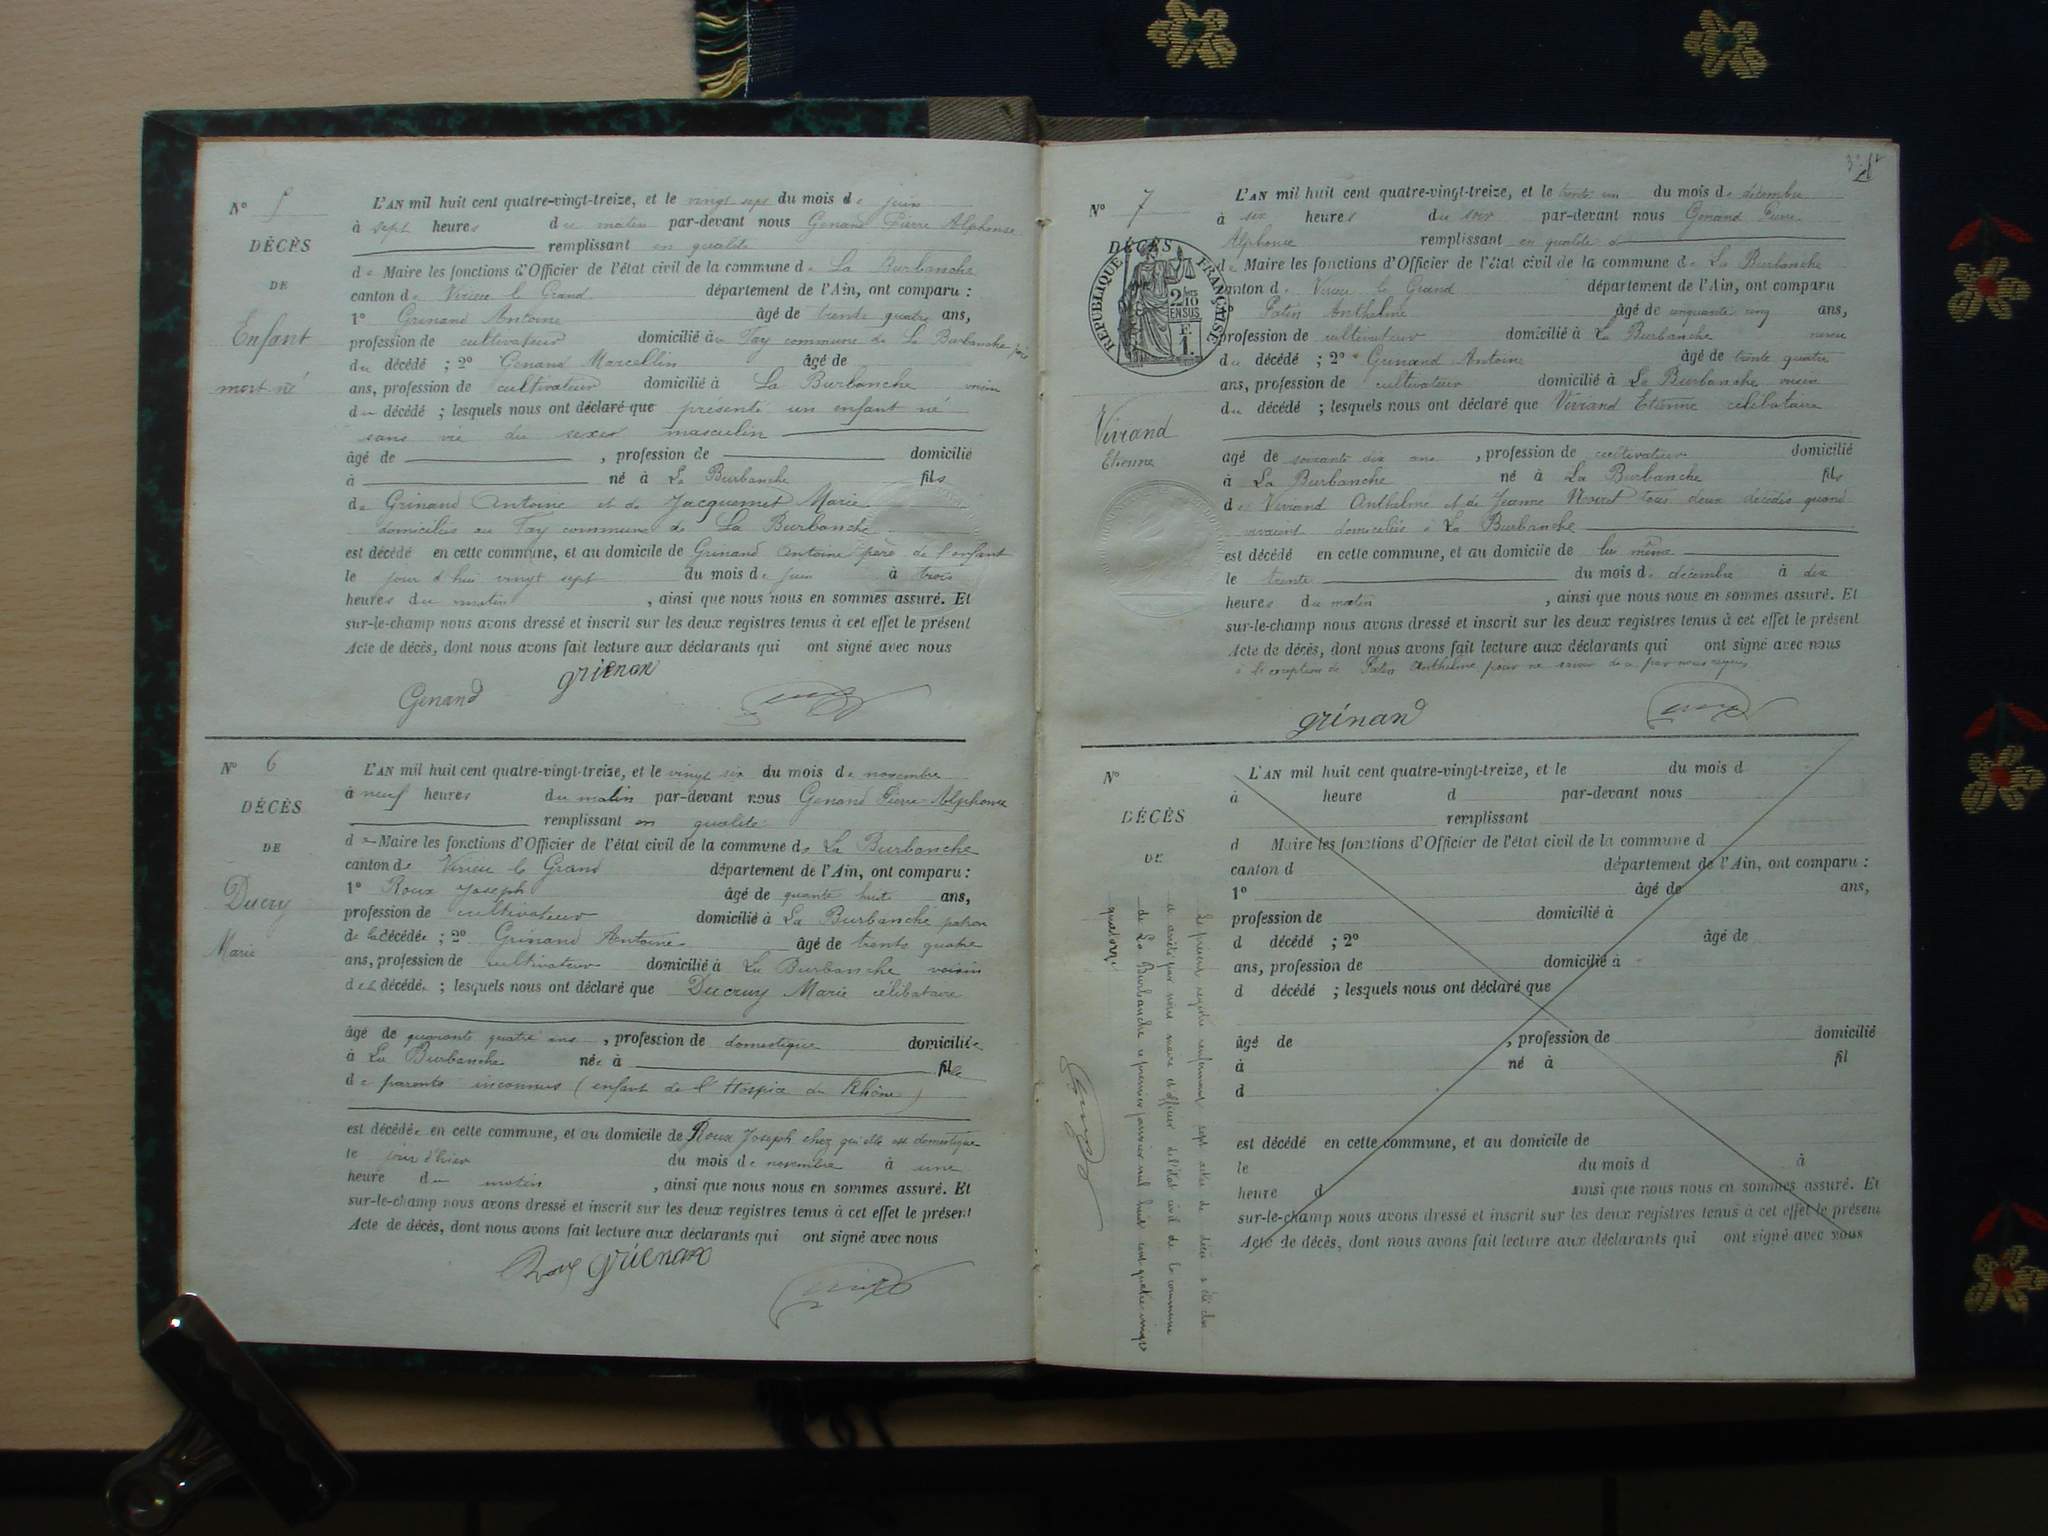 N° 5
DÉCÈS
DE
Enfant
mort né
L'AN mil huit cent quatre-vingt-treize, et le vingt sept du mois de juin
à sept heures du matin par-devant nous Genand Pierre Alphonse
remplissant en qualité
de Maire les fonctions d'Officier de l'état civil de la commune de La Burbanche
canton de Virieu le Grand département de l'Ain, ont comparu :
1° Grinand Antoine âgé de trente quatre ans,
profession de cultivateur domicilié au Fay commune de La Burbanche père
du décédé ; 2° Genand Marcellin âgé de
ans, profession de cultivateur domicilié à La Burbanche voisin
du décédé ; lesquels nous ont déclaré que présenté un enfant né
sans vie du sexe masculin
âgé de , profession de domicilié
à né à La Burbanche fils
de Grinand Antoine et de Jacquemet Marie
domiciliés au Fay commune de La Burbanche
est décédé en cette commune, et au domicile de Grinand Antoine père de l'enfant
le jour d'hui vingt sept du mois de juin à trois
heures du matin , ainsi que nous nous en sommes assuré. Et
sur-le-champ nous avons dressé et inscrit sur les deux registres tenus à cet effet le présent
Acte de décès, dont nous avons fait lecture aux déclarants qui ont signé avec nous
Genand grienan
N° 6
DÉCÈS
DE
Ducry
Marie
L'AN mil huit cent quatre-vingt-treize, et le vingt six du mois de novembre
à neuf heures du matin par-devant nous Genand Pierre Alphonse
remplissant en qualité
de Maire les fonctions d'Officier de l'état civil de la commune de La Burbanche
canton de Virieu le Grand département de l'Ain, ont comparu :
1° Roux Joseph âgé de quante huit ans,
profession de cultivateur domicilié à La Burbanche patron
de la décédée ; 2° Grinand Antoine âgé de trente quatre
ans, profession de cultivateur domicilié à La Burbanche voisin
de la décédée ; lesquels nous ont déclaré que Ducruy Marie célibataire
âgé de quarante quatre ans , profession de domestique domiciliée
à La Burbanche née à fille
de parents inconnus (enfant de l'Hospice du Rhône)
est décédée en cette commune, et au domicile de Roux Joseph chez qui elle est domestique
le jour d'hier du mois de novembre à une
heure du matin , ainsi que nous nous en sommes assuré. Et
sur-le-champ nous avons dressé et inscrit sur les deux registres tenus à cet effet le présent
Acte de décès, dont nous avons fait lecture aux déclarants qui ont signé avec nous
Roux grienan
N° 7
DÉCÈS
RÉPUBLIQUE FRANÇAISE
2 10
EN SUS
F.
1.
Viviand
Etienne
L'AN mil huit cent quatre-vingt-treize, et le trente un du mois de décembre
à six heures du soir par-devant nous Genand Pierre
Alphonse remplissant en qualité d
de Maire les fonctions d'Officier de l'état civil de la commune de La Burbanche
canton de Virieu le Grand département de l'Ain, ont comparu
1° Patin Anthelme âgé de cinquante cinq ans,
profession de cultivateur domicilié à La Burbanche neveu
du décédé ; 2° Grinand Antoine âgé de trente quatre
ans, profession de cultivateur domicilié à La Burbanche voisin
du décédé ; lesquels nous ont déclaré que Viviand Etienne célibataire
âgé de soixante dix ans , profession de cultivateur domicilié
à La Burbanche né à La Burbanche fils
de Viviand Anthelme et de Jeanne tous deux décédés quand
vivaient domiciliés à La Burbanche
est décédé en cette commune, et au domicile de lui même
le trente du mois de décembre à dix
heures du matin , ainsi que nous nous en sommes assuré. Et
sur-le-champ nous avons dressé et inscrit sur les deux registres tenus à cet effet le présent
Acte de décès, dont nous avons fait lecture aux déclarants qui ont signé avec nous
à l'exception de Patin Anthelme pour ne savoir de ce par nous requis
grinan
N°
DÉCÈS
DE
L'AN mil huit cent quatre-vingt-treize, et le du mois d
à heure d par-devant nous
remplissant
d Maire les fonctions d'Officier de l'état civil de la commune d
canton d département de l'Ain, ont comparu :
1° âgé de ans,
profession de domicilié à
d décédé ; 2° âgé de
ans, profession de domicilié à
d décédé ; lesquels nous ont déclaré que
âgé de , profession de domicilié
à né à fil
d
est décédé en cette commune, et au domicile de
le du mois d à
heure d ainsi que nous nous en sommes assuré. Et
sur-le-champ nous avons dressé et inscrit sur les deux registres tenus à cet effet le présent
Acte de décès, dont nous avons fait lecture aux déclarants qui ont signé avec nous
Le présent registre renfermant sept actes de décès a été clos
et arrêté par nous maire et officier de l'état civil de la commune
de La Burbanche ce premier janvier mil huit cent quatre-vingt
quatorze